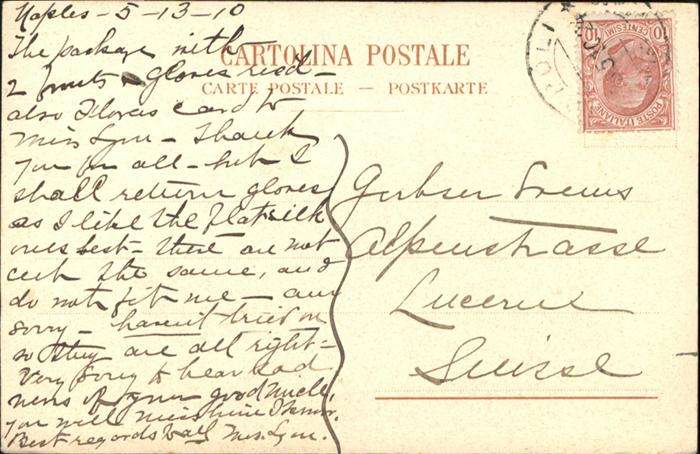 Naples - 5-13-10
The package with
2 & gloves rec'd -
also card to
Miss Lyon - Thank
you for all - but I
shall return gloves
as I like the flat silk
ones best - these are not
cut the same, and
do not fit me - am
sorry - haven't tried on
so they are all right =
Very sorry to hear sad
news of your good Uncle,
you will miss him
Best regards to all Mrs. Lyon.
CARTOLINA POSTALE
CARTE POSTALE — POSTKARTE
POSTE ITALIANE
CENTESIMI 10
Alpenstrasse
Lucerne
Suisse